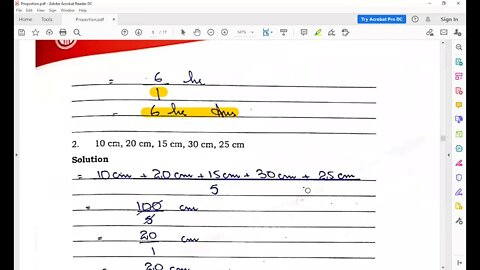 Proportion.pdf - Adobe Acrobat Reader DC
File Edit View Sign Window Help
Home Tools Proportion.pdf Sign In
147% Share
Try Acrobat Pro DC
= 6 hr
1
= 6 hr Ans
2. 10 cm, 20 cm, 15 cm, 30 cm, 25 cm
Solution
= 10 cm + 20 cm + 15 cm + 30 cm + 25 cm
5
= 100 cm
5
= 20 cm
1
= 20 cm